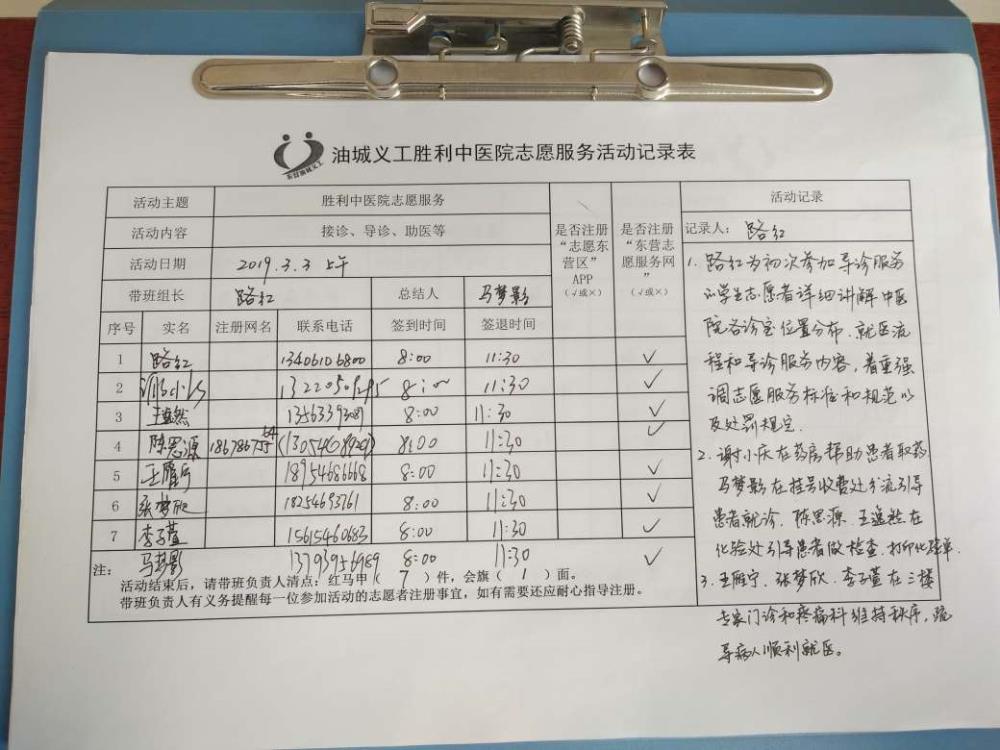 油城义工胜利中医院志愿服务活动记录表
东营油城义工
活动主题 胜利中医院志愿服务
活动内容 接诊、导诊、助医等
活动日期 2019.3.3 上午
带班组长 路红 总结人 马梦影
是否注册“志愿东营区”APP（√或×）
是否注册“东营志愿服务网”（√或×）
序号 实名 注册网名 联系电话 签到时间 签退时间
1 路红 13406106800 8:00 11:30 √
2 谢小庆 8:00 11:30 √
3 王逸然 8:00 11:30 √
4 陈思源 8:00 11:30 √
5 王雁宁 18954686668 8:00 11:30 √
6 张梦欣 18254693761 8:00 11:30 √
7 李子萱 15615460683 8:00 11:30 √
马梦影 13793956989 8:00 11:30 √
注：
活动结束后，请带班负责人清点：红马甲（ 7 ）件，会旗（ 1 ）面。
带班负责人有义务提醒每一位参加活动的志愿者注册事宜，如有需要还应耐心指导注册。
活动记录
记录人： 路红
1. 路红为初次参加导诊服务
的学生志愿者详细讲解中医
院各诊室位置分布、就医流
程和导诊服务内容，着重强
调志愿服务标准和规范以
及处罚规定.
2. 谢小庆在药房帮助患者取药
马梦影在挂号收费处分流引导
患者就诊. 陈思源、王逸然在
化验处引导患者做检查、打印化验单.
3. 王雁宁、张梦欣、李子萱在三楼
专家门诊和疼痛科维持秩序，疏
导病人顺利就医。